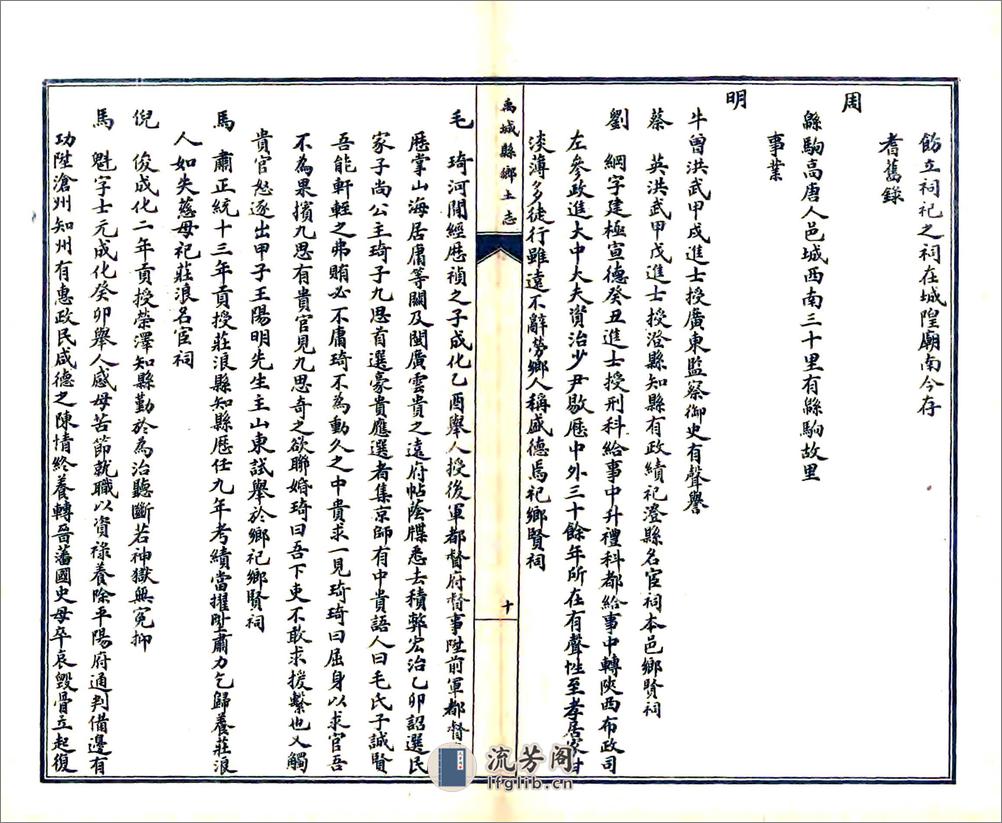 飭立祠祀之祠在城隍廟南今存
耆舊錄
周
緜駒高唐人邑城西南三十里有緜駒故里
事業
明
牛曾洪武甲戌進士授廣東監察御史有聲譽
蔡　英洪武甲戌進士授澄縣知縣有政績祀澄縣名宦祠本邑鄉賢祠
劉　綱字建極宣德癸丑進士授刑科給事中升禮科都給事中轉陝西布政司
左參政進大中大夫資治少尹敭歷中外三十餘年所在有聲性至孝居家甘
淡薄多徒行雖遠不辭勞鄉人稱盛德焉祀鄉賢祠
禹城縣鄉土志
十
毛　琦河間經歷禎之子成化乙酉舉人授後軍都督府督事陞前軍都督
歷掌山海居庸等關及閩廣雲貴之遠府帖蔭牒悉去積弊宏治乙卯詔選民
家子尚公主琦子九思首選豪貴應選者集京師有中貴語人曰毛氏子誠賢
吾能軒輊之弗賄必不庸琦不為動久之中貴求一見琦琦曰屈身以求官吾
不為果擯九思有貴官見九思奇之欲聯婚琦曰吾下吏不敢求援繫也又觸
貴官怒逐出甲子王陽明先生主山東試舉於鄉祀鄉賢祠
馬　肅正統十三年貢授莊浪縣知縣歷任九年考績當擢陞肅力乞歸養莊浪
人如失慈母祀莊浪名宦祠
倪　俊成化二年貢授榮澤知縣勤於為治聽斷若神獄無冤抑
馬　魁字士元成化癸卯舉人感母苦節就職以資祿養除平陽府通判備邊有
功陞滄州知州有惠政民咸德之陳情終養轉晉藩國史母卒哀毀骨立起復
流芳阁
lfglib.cn